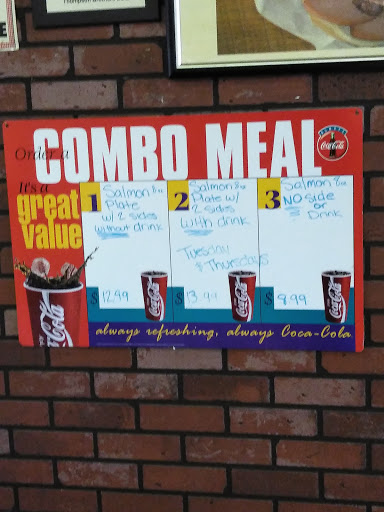 Order a
COMBO MEAL
It's a
great
value
1
Salmon
Plate
w/ 2 sides
without drink
$ 12.99
2
Salmon
Plate w/
2 sides
With drink
Tuesday
& Thursdays
$ 13.99
3
Salmon
NO side
or
Drink
$ 8.99
Coca-Cola
always refreshing, always Coca-Cola